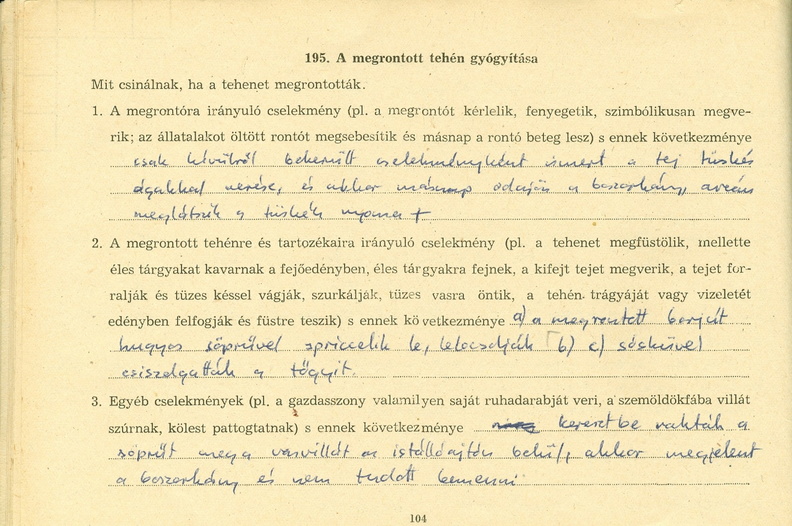 195. A megrontott tehén gyógyítása
Mit csinálnak, ha a tehenet megrontották.
1. A megrontóra irányuló cselekmény (pl. a megrontót kérlelik, fenyegetik, szimbólikusan megve-
rik; az állatalakot öltött rontót megsebesítik és másnap a rontó beteg lesz) s ennek következménye
csak kívülről bekerült cselekményként ismert a tej tüskés
ágakkal verése, és akkor másnap odajön a boszorkány, arcán
meglátszik a tüskék nyoma +
2. A megrontott tehénre és tartozékaira irányuló cselekmény (pl. a tehenet megfüstölik, mellette
éles tárgyakat kavarnak a fejőedényben, éles tárgyakra fejnek, a kifejt tejet megverik, a tejet for-
ralják és tüzes késsel vágják, szurkálják, tüzes vasra öntik, a tehén trágyáját vagy vizeletét
edényben felfogják és füstre teszik) s ennek következménye a) a megrontott borját
hugyos söprűvel spriccelik le, lelocsolják b) c) sóskővel
csiszolgatták a tőgyit.
3. Egyéb cselekmények (pl. a gazdasszony valamilyen saját ruhadarabját veri, a szemöldökfába villát
szúrnak, kölest pattogtatnak) s ennek következménye keresztbe rakták a
söprűt meg a vasvillát az istállóajtón belül, akkor megjelent
a boszorkány és nem tudott bemenni
104